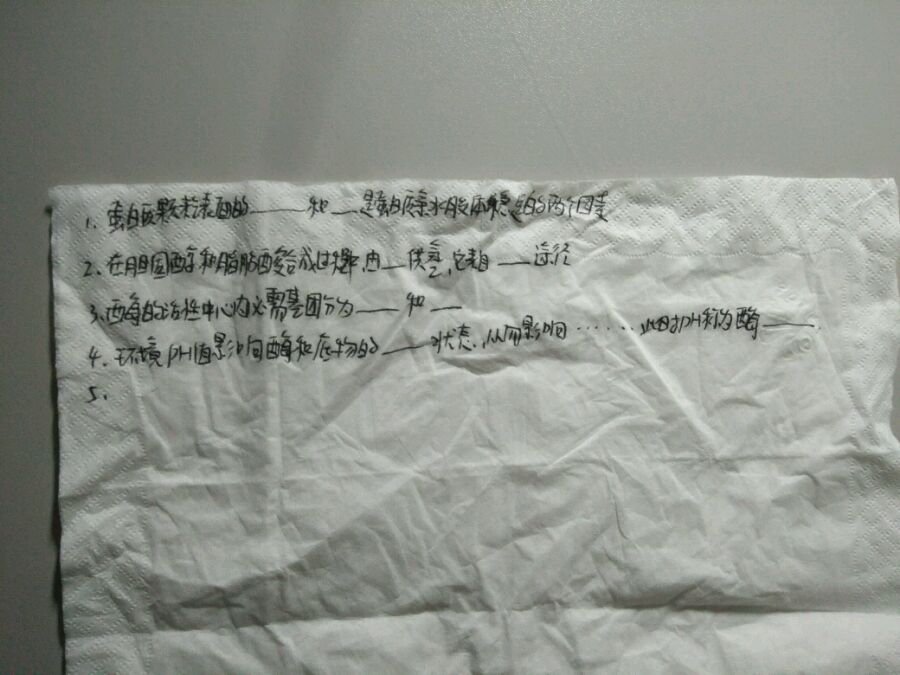 1. 蛋白质颗粒表面的____和__是蛋白质亲水胶体稳定的两个因素
2. 在胆固醇和脂肪酸合成过程中由__供氢,它来自___途径
3. 酶的活性中心内必需基团分为___和__
4. 环境PH值影响酶和底物的___状态,从而影响……,此时PH称为酶___.
5.